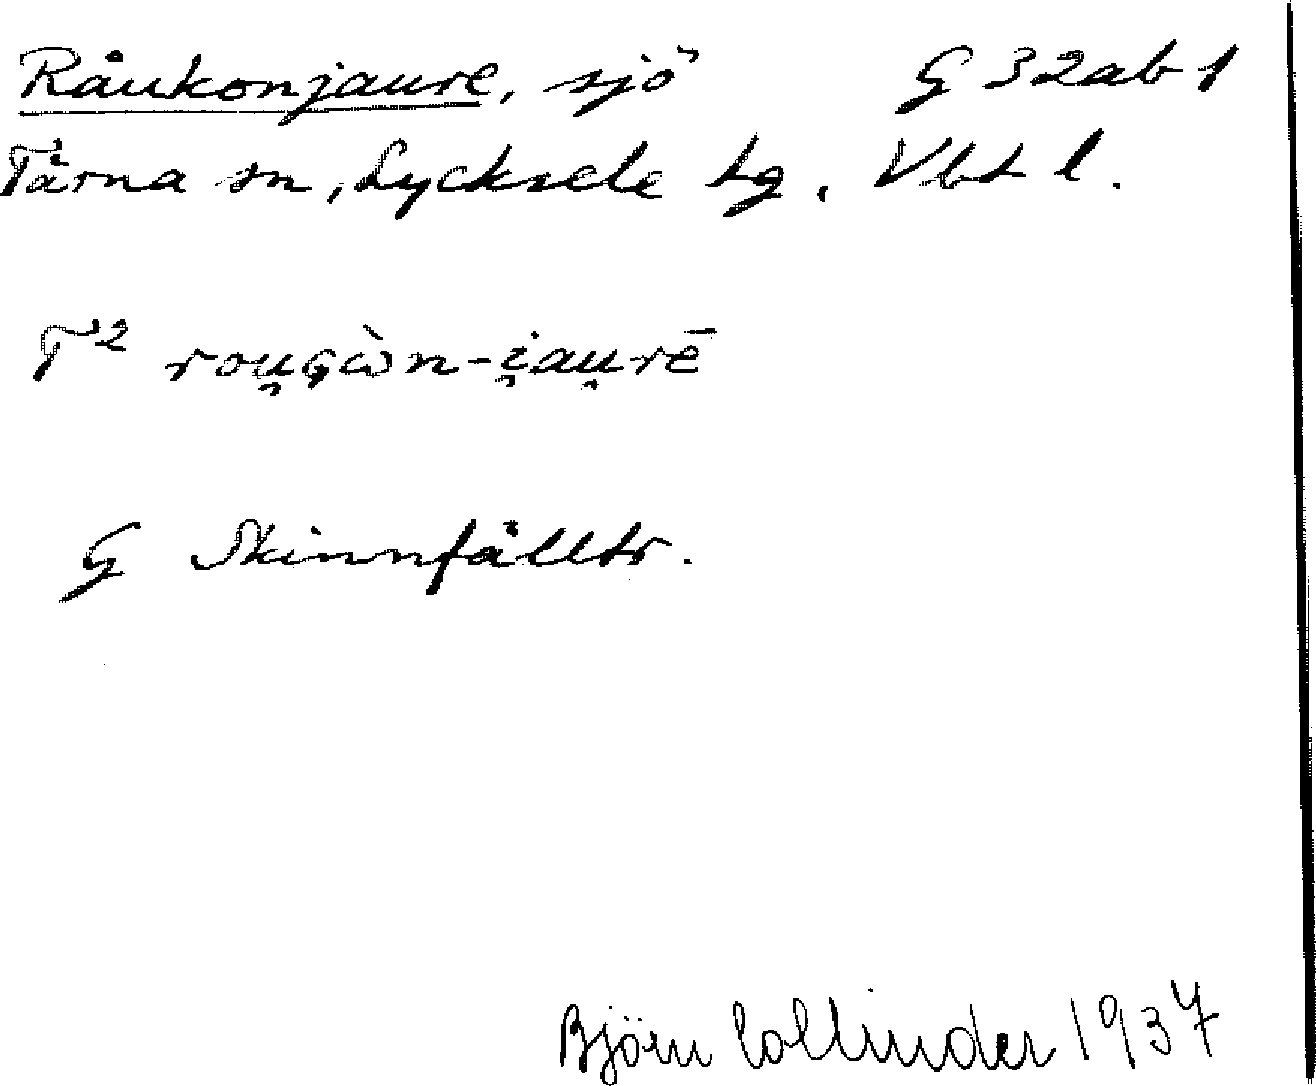 Råukonjaure, sjö G 32ab1
Tärna sn, Lycksele lg, Vbt l.
T² rou̯gὼn-i̯au̯rē
G Skinnfälltr.
Björn Collinder 1937